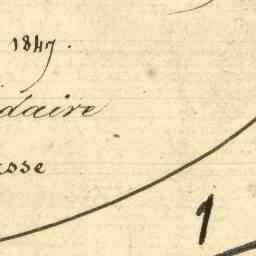 1847.
daire
asse
1